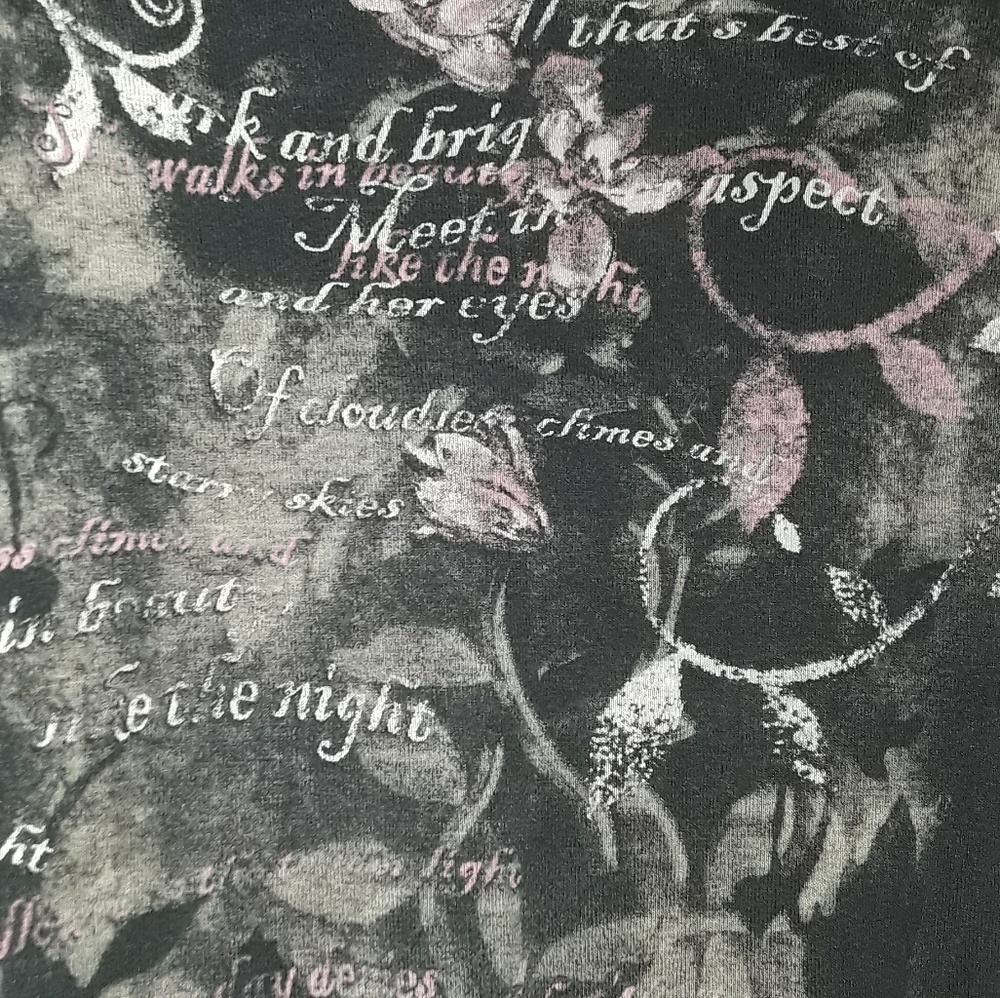 that's best of
and brig
walks in beauty
aspect
Meet in
like the night
and her eyes
Of cloudless climes and
starry skies
ss climes and
in beaut
the night
ht
light
day denies